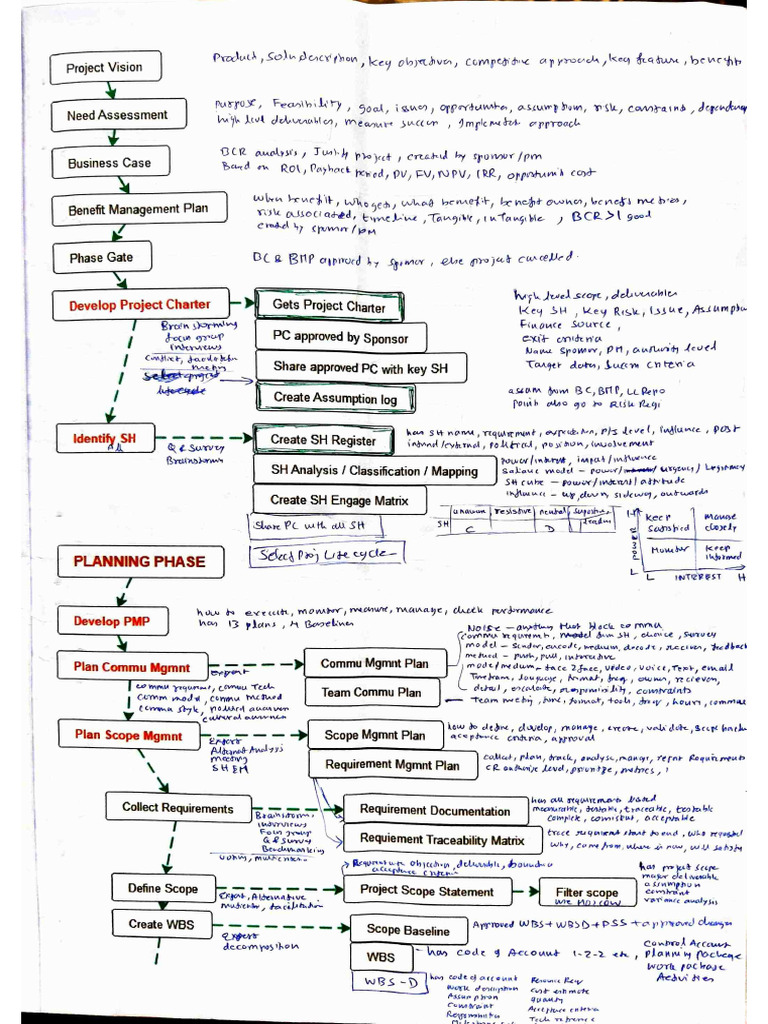 Project Vision
Product, Soln description, key objectives, competitive approach, key feature, benefits
Need Assessment
purpose, Feasibility, goal, issues, opportunities, assumptions, risk, constraints, dependency
high level deliverables, measure success, Implementation approach
Business Case
BCR analysis, Justify project, created by sponsor/pm
Based on ROI, Payback period, PV, FV, NPV, IRR, opportunity cost
Benefit Management Plan
when benefit, who gets, what benefit, benefit owner, benefit metrics,
risk associated, timeline, Tangible, inTangible, BCR>1 good
created by sponsor/pm
Phase Gate
BC & BMP approved by sponsor, else project cancelled.
Develop Project Charter
Gets Project Charter
PC approved by Sponsor
Share approved PC with key SH
Create Assumption log
Brain storming
focus group
interviews
conflict, facilitation
meeting
high level scope, deliverables
Key SH, Key Risk, Issue, Assumption
Finance source,
exit criteria
Name sponsor, PM, authority level
Target dates, Success criteria
assum from BC, BMP, LL Repo
points also go to Risk Regi
Identify SH
Q & Survey
Brainstorms
Create SH Register
has SH name, requirement, expectation, P/S level, influence, post
internal/external, political, position, involvement
SH Analysis / Classification / Mapping
power/interest, impact/influence
Salience model - power/urgency/legitimacy
SH cube - power/interest/attitude
influence - up, down, sideway, outwards
Create SH Engage Matrix
unaware resistive neutral supportive leading
SH C D
Share PC with all SH
Select Proj Life cycle
H
Keep Satisfied
Manage closely
POWER
Monitor
Keep informed
L
L INTEREST H
PLANNING PHASE
Develop PMP
how to execute, monitor, measure, manage, check performance
has 13 plans, 4 Baselines
Plan Commu Mgmnt
expert
commu requirement, commu Tech
comm model, commu method
commu style, political awareness
cultural awareness
Commu Mgmnt Plan
Team Commu Plan
Noise - anything that block commu
commu requiremnt, from SH, choice, survey
model - sender, encode, medium, decode, receiver, feedback
method - push, pull, interactive
mode/medium - face 2 face, video, voice, Text, email
Timeframe, language, format, freq, owner, receiver,
detail, escalate, responsibility, constraints
Team meeting, time, format, tools, freq, hours, commu
Plan Scope Mgmnt
Expert
Alternat Analysis
meeting
SH EM
Scope Mgmnt Plan
how to define, develop, manage, execute, validate, scope
acceptance criteria, approval
Requirement Mgmnt Plan
collect, plan, track, analyse, manage, report Requirements
CR authorize level, prioritize, metrics,
Collect Requirements
Brainstorm
interviews
Focus group
Q & survey
Benchmarking
voting, multicriteria
Requirement Documentation
has all requirements listed
measurable, testable, traceable, testable
complete, consistent, acceptable
Requiement Traceability Matrix
trace requirment start to end, who requested
why, come from, where is now, will satisfy
Define Scope
Expert, Alternative
multicriter, facilitation
Requirements objective, deliverable, boundries
acceptance criteria
Project Scope Statement
Filter scope
use MOSCOW
has project scope
major deliverable
assumption
constraint
variance analysis
Create WBS
Expert
decomposition
Scope Baseline
Approved WBS + WBSD + PSS + approved changes
WBS
- has code of Account 1-2-2 etc,
Control Account
planning package
work package
Activities
WBS - D
has code of account
Work description
Assumption
Constraint
Resource Req
Cost estimate
quality
Acceptance criteria
Tech reference